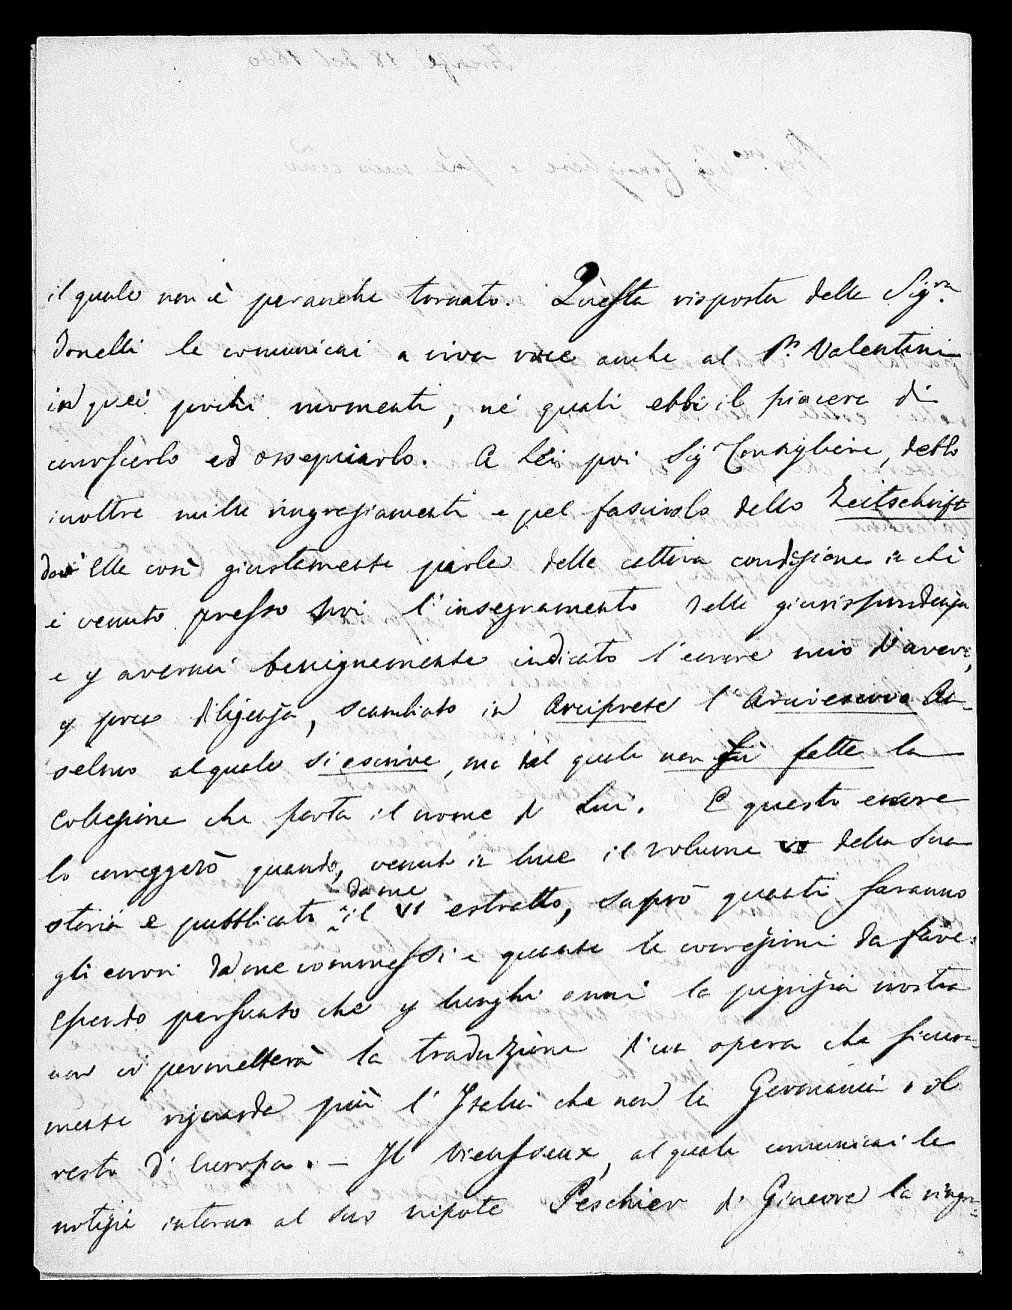 il quale non è peranche tornato. Questa risposta della Sig.ra
Donelli la comunicai a viva voce anche al Pr. Valentini
in quei pochi momenti, ne' quali ebbi il piacere di
conoscerlo ed ossequiarlo. A Lei poi Sigr Consigliere, debbo
inoltre mille ringraziamenti e pel fascicolo dello Zeitschrift
dov' Ella così giustamente parla della cattiva condizione in che
è venuto presso noi l'insegnamento della giurisprudenza
e p avermi benignamente indicato l'errore mio d'aver,
p poca diligenza, scambiato in Arciprete l'Arcivescovo An-
selmo al quale si scrive, ma dal quale non fù fatta la
collezione che porta il nome di Lui. E questo errore
lo correggerò quando, venuto in luce il volume VI della Sua
storia e pubblicato il VI da me estratto, saprò quanti saranno
gli errori da me commessi e quante le correzioni da fare:
essendo persuaso che p lunghi anni la pigrizia nostra
non ci permetterà la traduzione d'un opera che sicura-
mente riguarda più l'Italia che non la Germania o il
resto d'Europa. — Il Vieusseux, al quale comunicai le
notizie intorno al suo nipote Peschier di Ginevra la ringra-